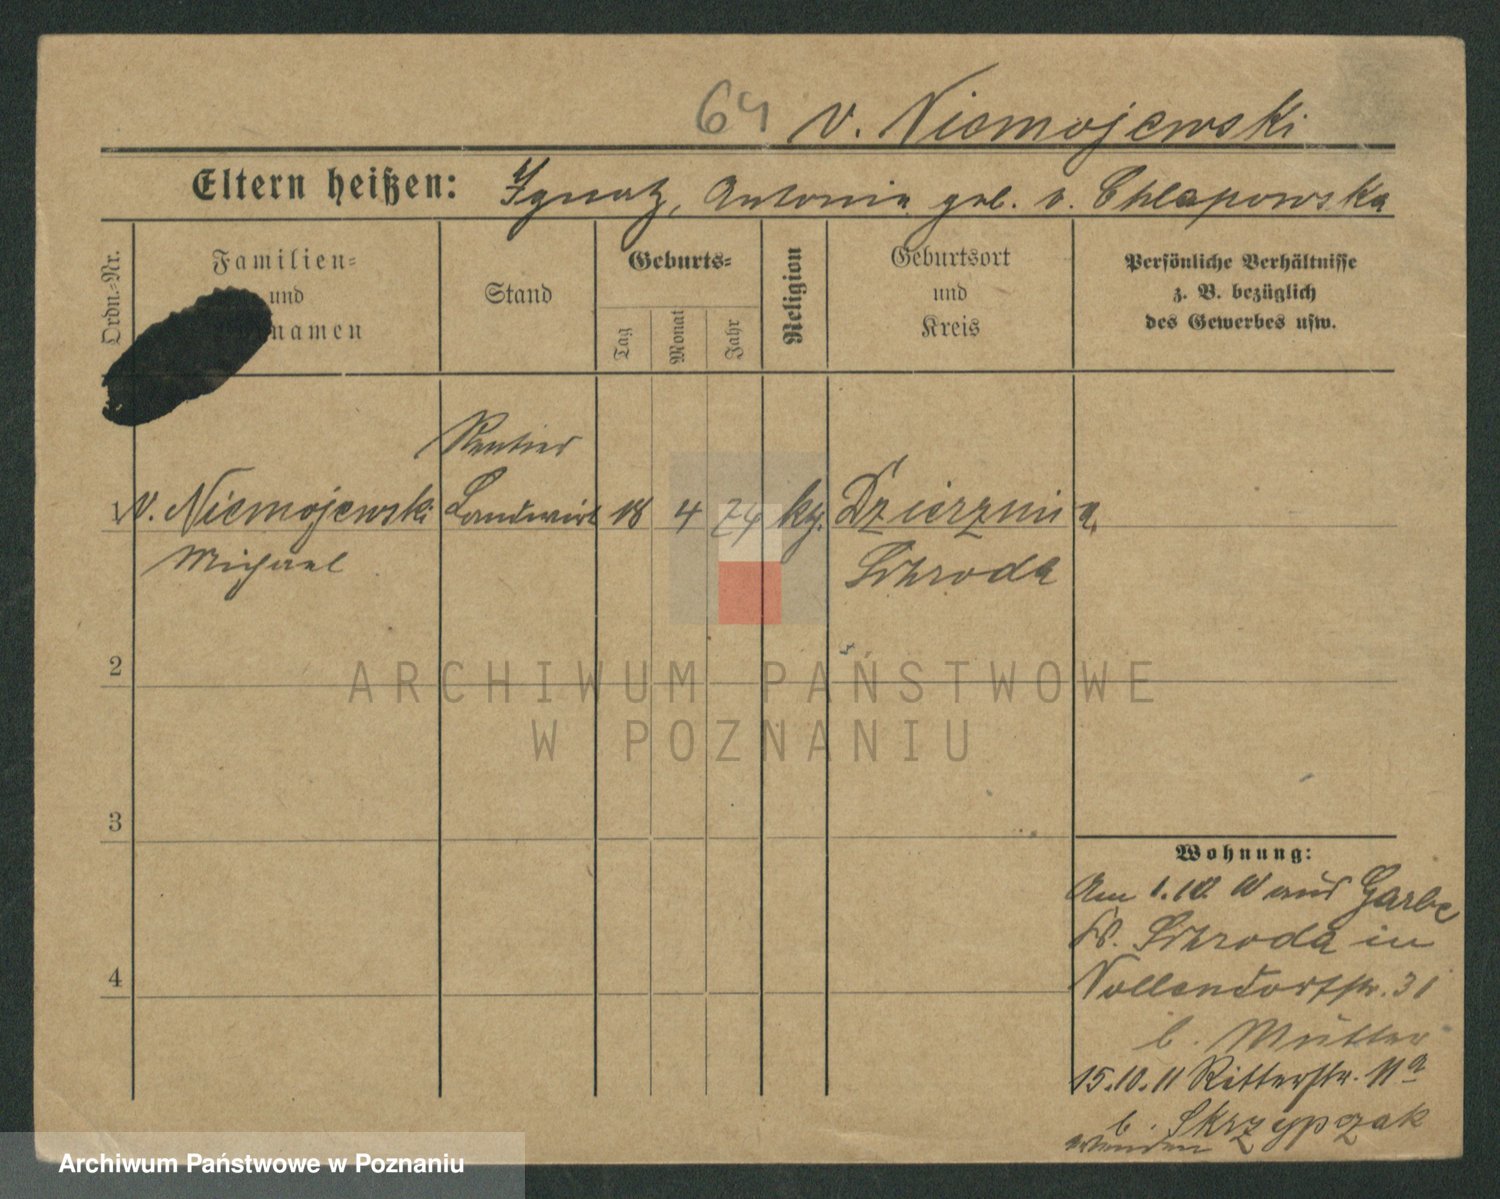 64 v. Niemojewski
Eltern heißen: Ignatz, Antonie geb. v. Chlapowska
Ordn.-Nr.
Familien-
und
namen
Stand
Geburts-
Tag
Monat
Jahr
Religion
Geburtsort
und
Kreis
Persönliche Verhältnisse
z. B. bezüglich
des Gewerbes usw.
Rentier
1 v. Niemojewski Landwirt 18 4 74 kg. Dzierznica
Michael Schroda
2
ARCHIWUM PAŃSTWOWE
W POZNANIU
3
Wohnung:
Am 1.10. 10 aus Garbe
Kr. Schroda in
Nollendorfstr. 31
b. Mutter
15.10.11 Ritterstr. 11a
b. Skrzypczak
wenden
4
Archiwum Państwowe w Poznaniu